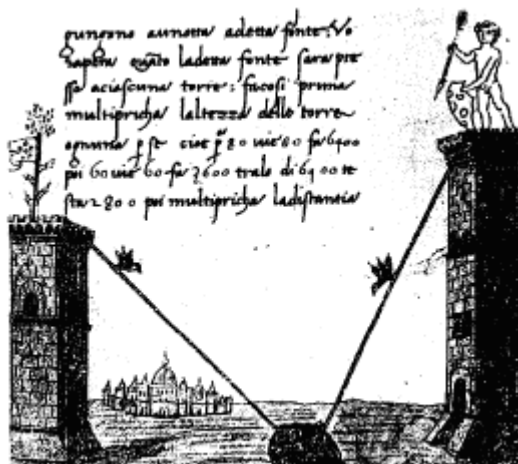 gungono aunotta adetta fonte. Vo
sapere quāto ladetta fonte sara pre
sso aciascuna torre: facosi prima
multipricha laltezza delle torre
ognuna p se cioe p 80 vie 80 fa 6400
poi 60 vie 60 fa 3600 tralo di 6400 re
sta 2800 poi multipricha ladistantia